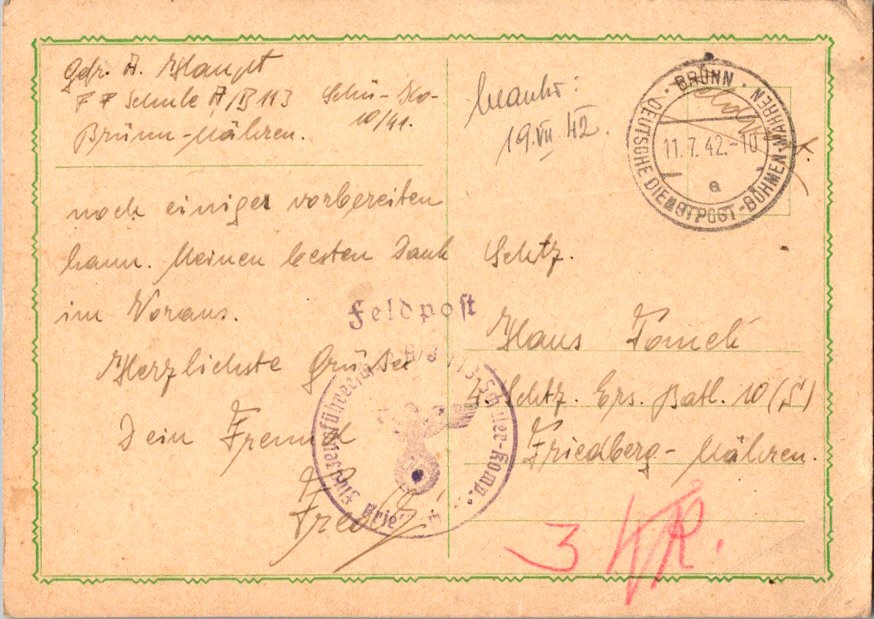 Gefr. A. Haupt
FF Schule A/B 113 Schü-Ko-
10/41.
Brünn-Mähren.
noch einiger vorbereiten
kann. Meinen besten Dank
im Voraus.
Herzlichste Grüße
Dein Freund
Fred
beantw:
19.VII 42.
BRÜNN
11.7.42.-10
a
DEUTSCHE DIENSTPOST-BÖHMEN-MÄHREN
Feldpost
Schtz.
Hans Tomek
4. Schtz. Ers. Batl. 10 (S)
Friedberg-Mähren.
Flugzeugführerschule A/B 113 Schüler-Komp.
3